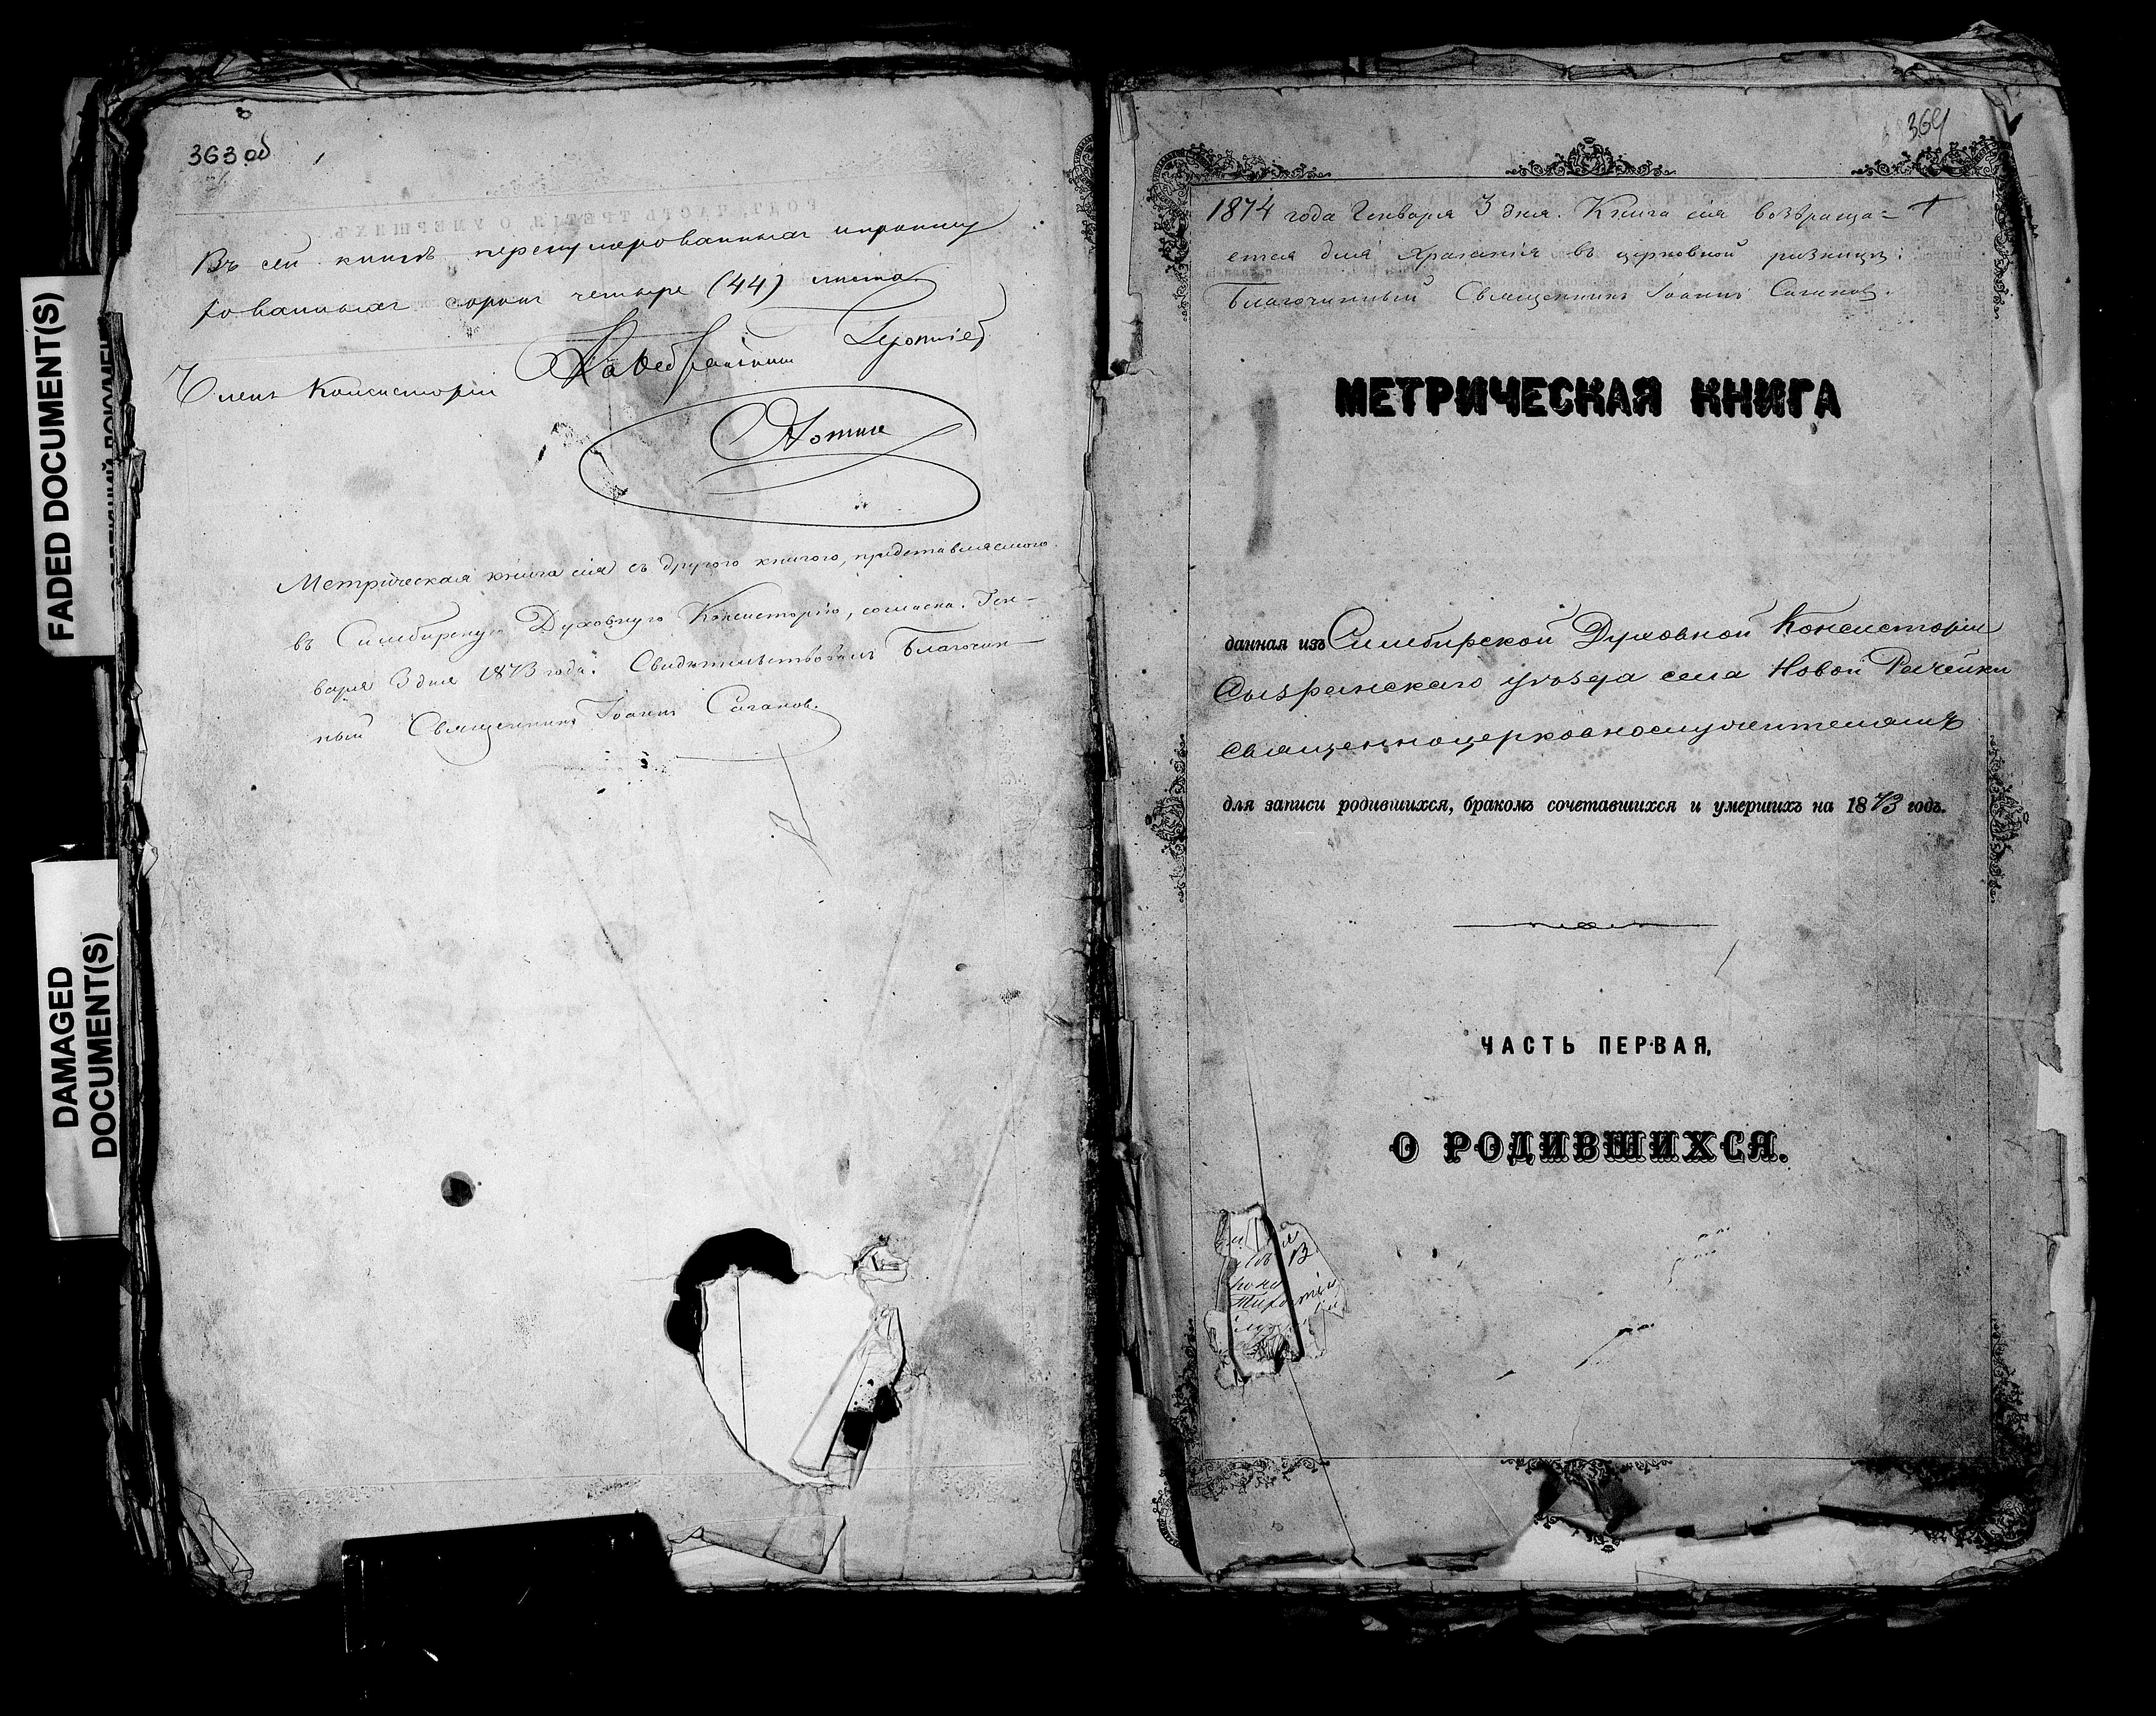 FADED DOCUMENT(S)
DAMAGED
DOCUMENT(S)
363 об
Въ сей книгѣ перенумерованныхъ и прошну
рованныхъ сорокъ четыре (44) листа
Членъ Консисторіи Каѳедральный
Метрическая книга сія съ другою книгою, представляемою
въ Симбирскую Духовную Консисторію, согласна. Ген-
варя 3 дня 1873 года. Свидѣтельствовалъ Благочин-
ный Священникъ Іоаннъ Сагановъ.
364
1874 года Генваря 3 дня. Книга сія возвраща=
ется для храненія въ церковной ризницѣ:
Благочинный Священникъ Іоаннъ Сагановъ.
МЕТРИЧЕСКАЯ КНИГА
данная изъ Симбирской Духовной Консисторіи
Сызранскаго уѣзда села Новой Рачейки
священноцерковнослужителямъ
для записи родившихся, бракомъ сочетавшихся и умершихъ на 1873 годъ.
ЧАСТЬ ПЕРВАЯ,
О РОДИВШИХСЯ.